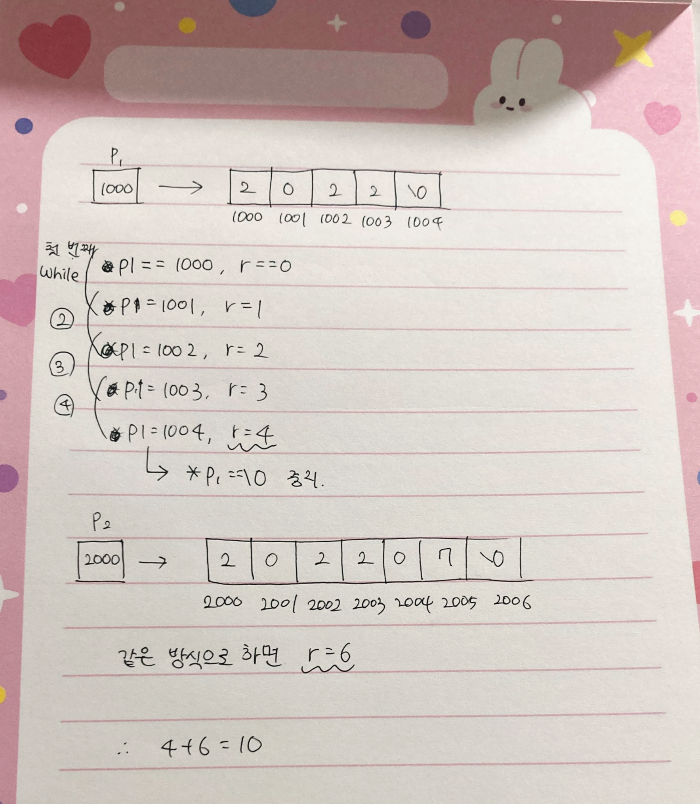 P₁
1000 → 2 0 2 2 \0
1000 1001 1002 1003 1004
첫 번째
While
P1 == 1000, r==0
② P1=1001, r=1
③ P1=1002, r=2
④ P1=1003, r=3
P1=1004, r=4
↳ *P₁ ==\0 종리.
P₂
2000 → 2 0 2 2 0 7 \0
2000 2001 2002 2003 2004 2005 2006
같은 방식으로 하면 r=6
∴ 4+6=10